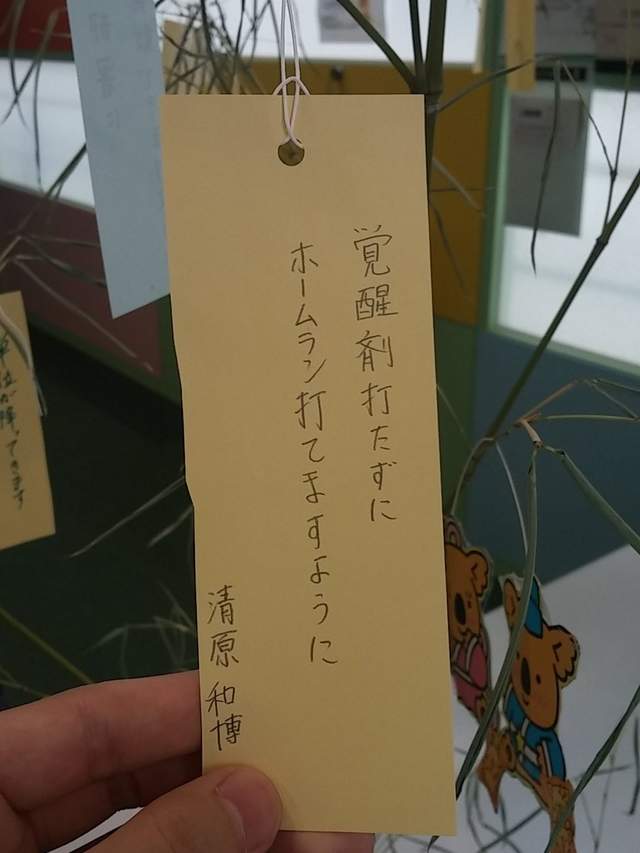 覚醒剤打たずに
ホームラン打てますように
清原和博
単位が降ってきます